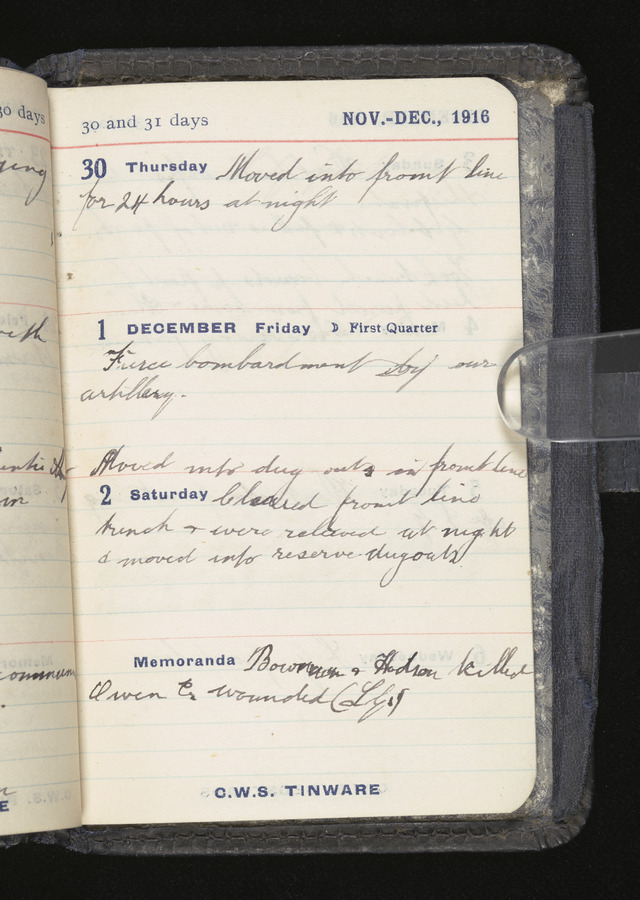 30 days
30 and 31 days NOV.-DEC., 1916
30 Thursday Moved into front line
for 24 hours at night
1 DECEMBER Friday ☽ First Quarter
Fierce bombardment by our
artillery.
Moved into dug outs in front line
2 Saturday Cleared front line
trench & were relieved at night
& moved into reserve dugouts
Memoranda Bowman & Hodson killed
Owen E. wounded (LGs)
C.W.S. TINWARE